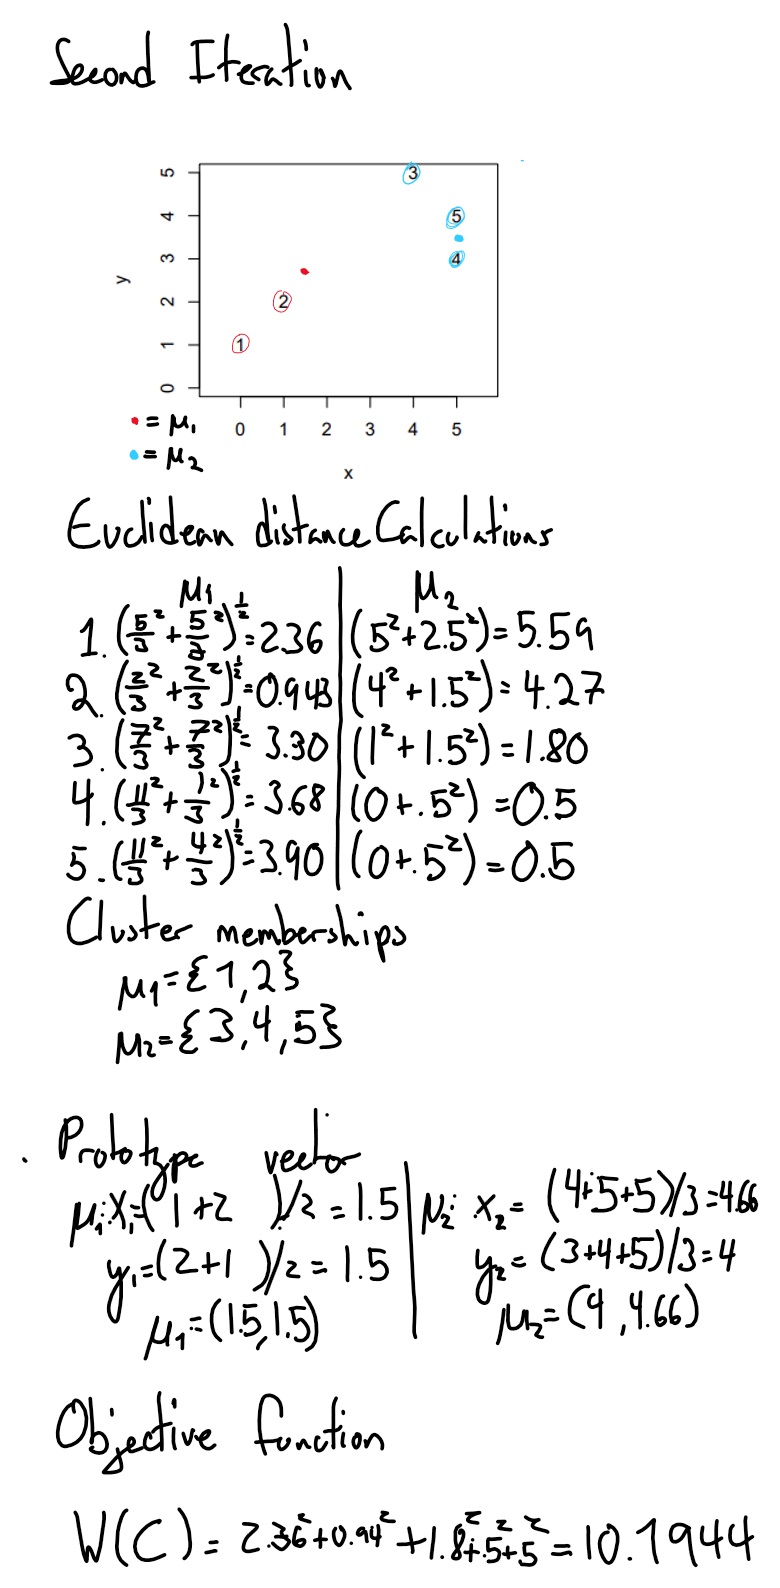 Second Iteration
5
4
3
2
1
0
y
3
5
4
2
1
0 1 2 3 4 5
x
• = μ₁
• = μ₂
Euclidean distance Calculations
μ₁ | μ₂
1. (5/3² + 5/3²)^½ = 2.36 | (5² + 2.5²) = 5.59
2. (2/3² + 2/3²)^½ = 0.943 | (4² + 1.5²) = 4.27
3. (7/3² + 7/3²)^½ = 3.30 | (1² + 1.5²) = 1.80
4. (11/3² + 1/3²)^½ = 3.68 | (0 + .5²) = 0.5
5. (11/3² + 4/3²)^½ = 3.90 | (0 + .5²) = 0.5
Cluster memberships
μ₁ = {1,2}
μ₂ = {3,4,5}
. Prototype vector
μ₁: x₁ = (1+2)/2 = 1.5 | μ₂: x₂ = (4+5+5)/3 = 4.66
y₁ = (2+1)/2 = 1.5 | y₂ = (3+4+5)/3 = 4
μ₁ = (1.5, 1.5) | μ₂ = (4, 4.66)
Objective function
W(C) = 2.36² + 0.94² + 1.8² + .5² + .5² = 10.1944